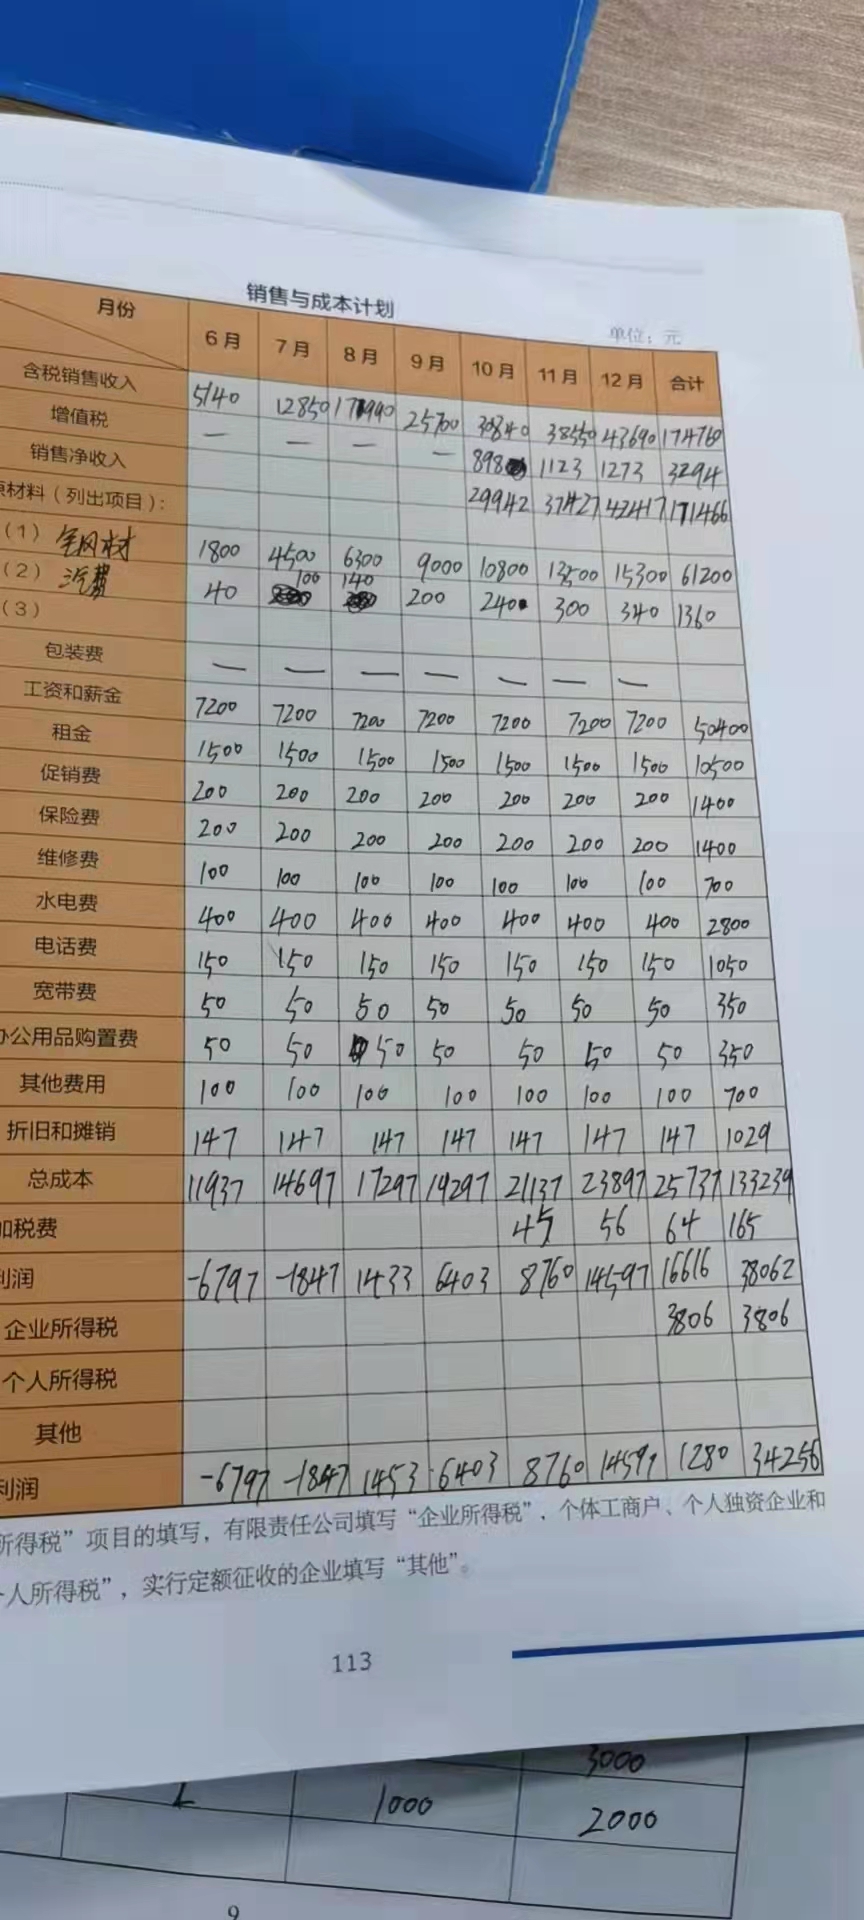 销售与成本计划
单位：元
月份 6月 7月 8月 9月 10月 11月 12月 合计
含税销售收入 5140 12850 17990 25700 30840 38550 43690 174760
增值税 — — — — 898 1123 1273 3294
销售净收入 29942 37427 42417 171466
原材料（列出项目）：
（1） 1800 4500 6300 9000 10800 13500 15300 61200
（2） 40 100 140 200 240 300 340 1360
（3）
包装费 — — — — — — —
工资和薪金 7200 7200 7200 7200 7200 7200 7200 50400
租金 1500 1500 1500 1500 1500 1500 1500 10500
促销费 200 200 200 200 200 200 200 1400
保险费 200 200 200 200 200 200 200 1400
维修费 100 100 100 100 100 100 100 700
水电费 400 400 400 400 400 400 400 2800
电话费 150 150 150 150 150 150 150 1050
宽带费 50 50 50 50 50 50 50 350
办公用品购置费 50 50 50 50 50 50 50 350
其他费用 100 100 100 100 100 100 100 700
折旧和摊销 147 147 147 147 147 147 147 1029
总成本 11937 14697 17297 19297 21137 23897 25737 133239
加税费 45 56 64 165
利润 -6797 -1847 1433 6403 8760 14597 16616 38062
企业所得税 3806 3806
个人所得税
其他
利润 -6797 -1847 1453 6403 8760 1459 1280 34256
所得税”项目的填写，有限责任公司填写“企业所得税”，个体工商户、个人独资企业和
个人所得税”，实行定额征收的企业填写“其他”。
113
3000
1000 2000
9